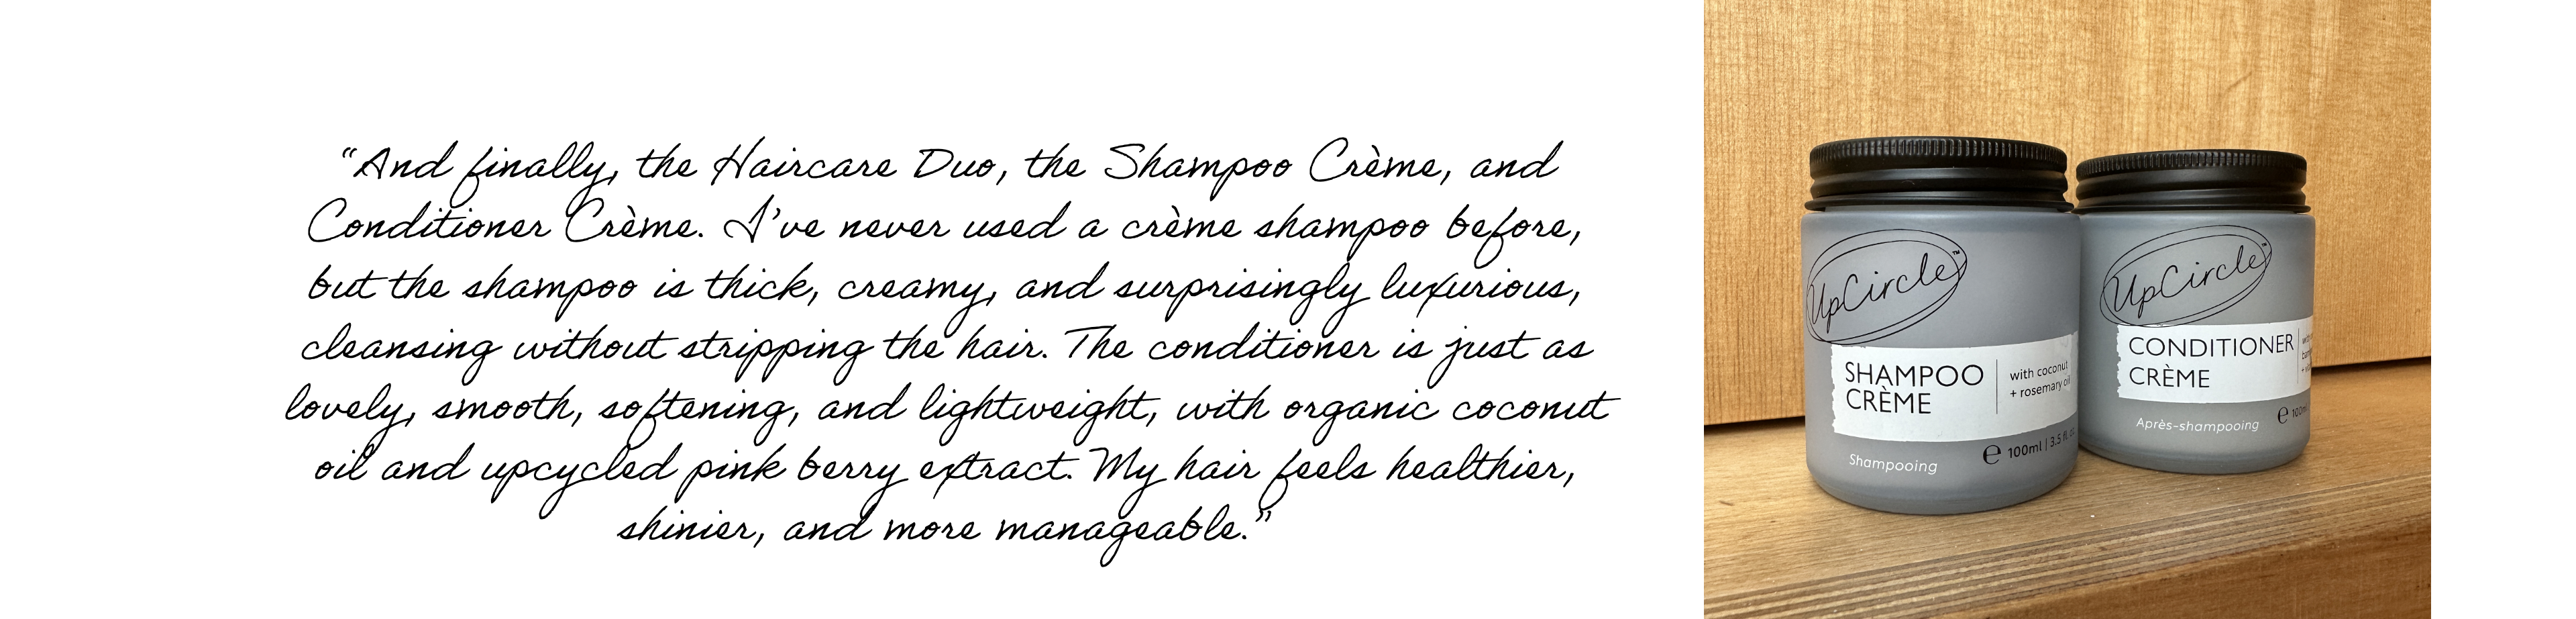 “And finally, the Haircare Duo, the Shampoo Crème, and
Conditioner Crème. I’ve never used a crème shampoo before,
but the shampoo is thick, creamy, and surprisingly luxurious,
cleansing without stripping the hair. The conditioner is just as
lovely, smooth, softening, and lightweight, with organic coconut
oil and upcycled pink berry extract. My hair feels healthier,
shinier, and more manageable.”
UpCircle™
SHAMPOO
CRÈME
with coconut
+ rosemary oil
Shampooing
℮ 100ml | 3.5 fl
UpCircle
CONDITIONER
CRÈME
Après-shampooing
℮ 100ml